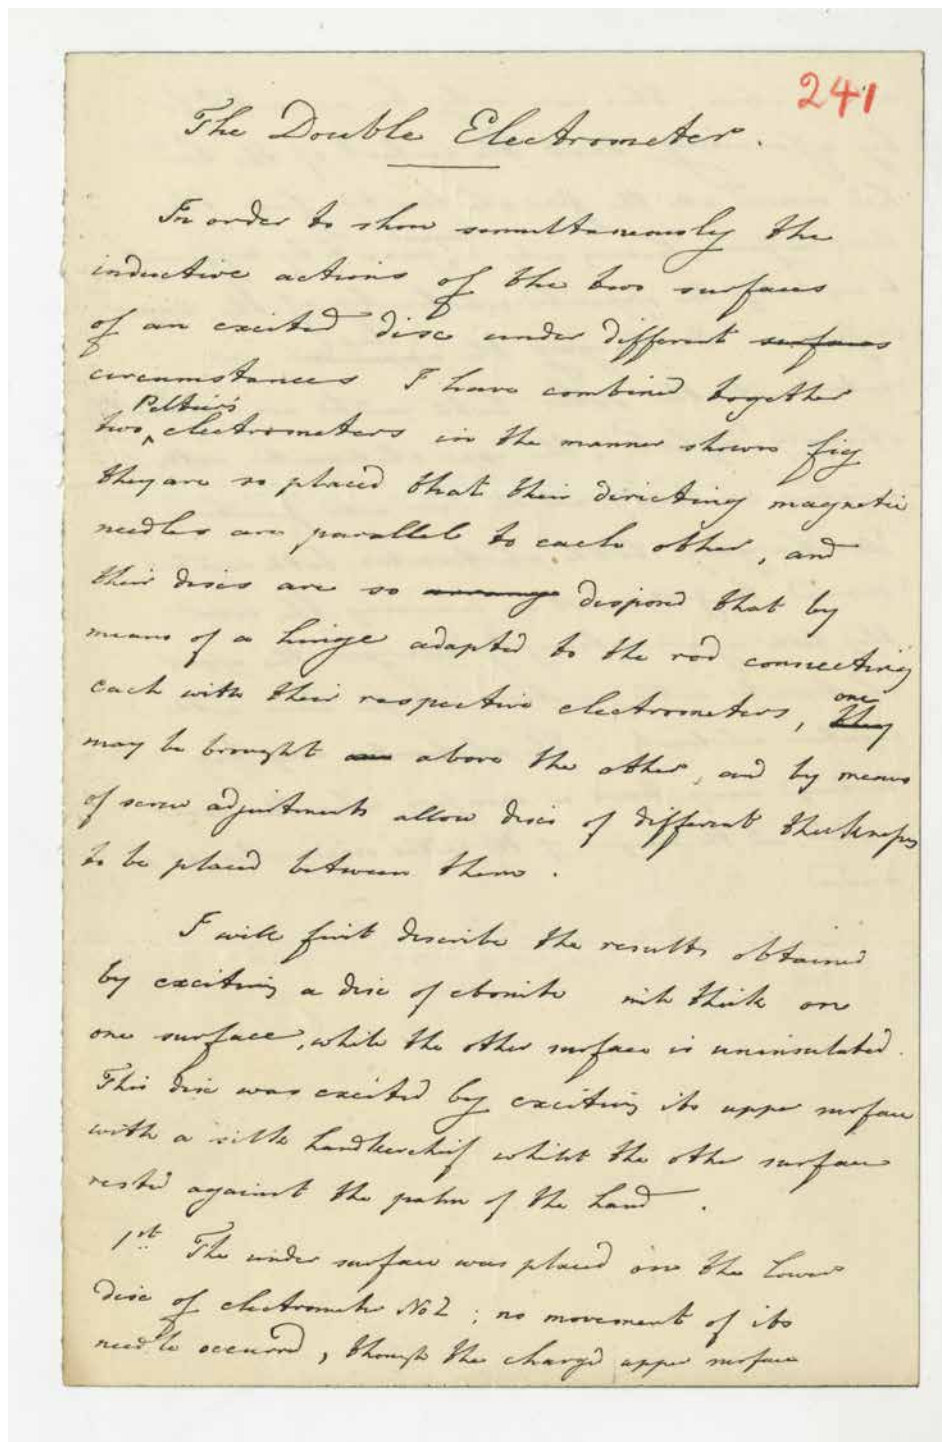 241
The Double Electrometer.
In order to show simultaneously the
inductive actions of the two surfaces
of an excited disc under different surfaces
circumstances I have combined together
Peltier's
two electrometers in the manner shown fig
they are so placed that their directing magnetic
needles are parallel to each other, and
their discs are so arrange disposed that by
means of a hinge adapted to the rod connecting
each with their respective electrometers, they
one
may be brought above the other, and by means
of screw adjustments allow discs of different thickness
to be placed between them.
I will first describe the results obtained
by exciting a disc of ebonite inch thick on
one surface, while the other surface is uninsulated.
This disc was excited by exciting its upper surface
with a silk handkerchief whilst the other surface
rested against the palm of the hand.
1st The under surface was placed on the lower
disc of electrometer No2; no movement of its
needle occurred, though the charged upper surface